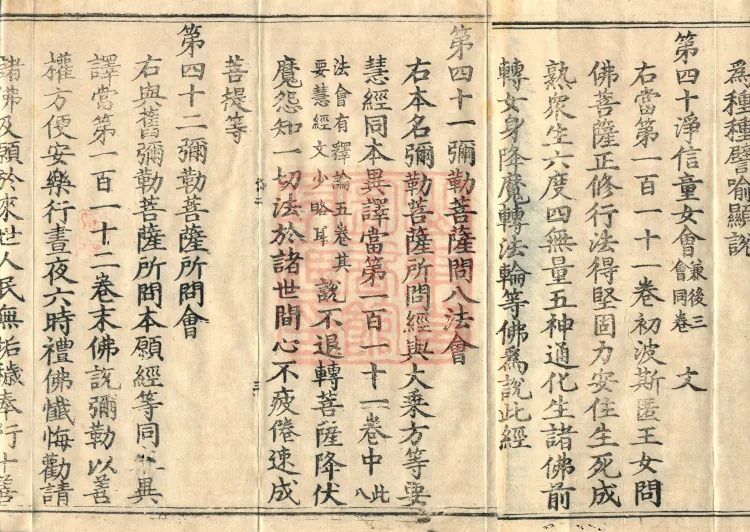 爲種種譬喻顯説
第四十淨信童女會 兼後三會同卷 文
右當第一百一十一卷初波斯匿王女問
佛菩薩正修行法得堅固力安住生死成
熟衆生六度四無量五神通化生諸佛前
轉女身降魔轉法輪等佛爲說此經
第四十一彌勒菩薩問八法會
右本名彌勒菩薩所問經與大乘方等要
慧經同本異譯當第一百一十一卷中 此八
法會有釋論五卷其要慧經文少略耳 說不退轉菩薩降伏
魔怨知一切法於諸世間心不疲倦速成
菩提等
第四十二彌勒菩薩所問會
右與舊彌勒菩薩所問本願經等同本異
譯當第一百一十二卷末佛說彌勒以善
權方便安樂行晝夜六時禮佛懺悔勸請
諸佛及願於來世人民無垢穢奉行十善